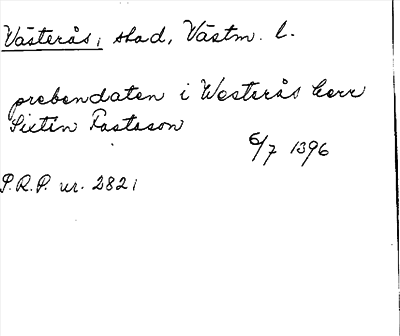 Västerås, stad, Västm. l.
prebendaten i Westerås herr
Sixtin Fastason
6/7 1396
S.R.P. nr. 2821